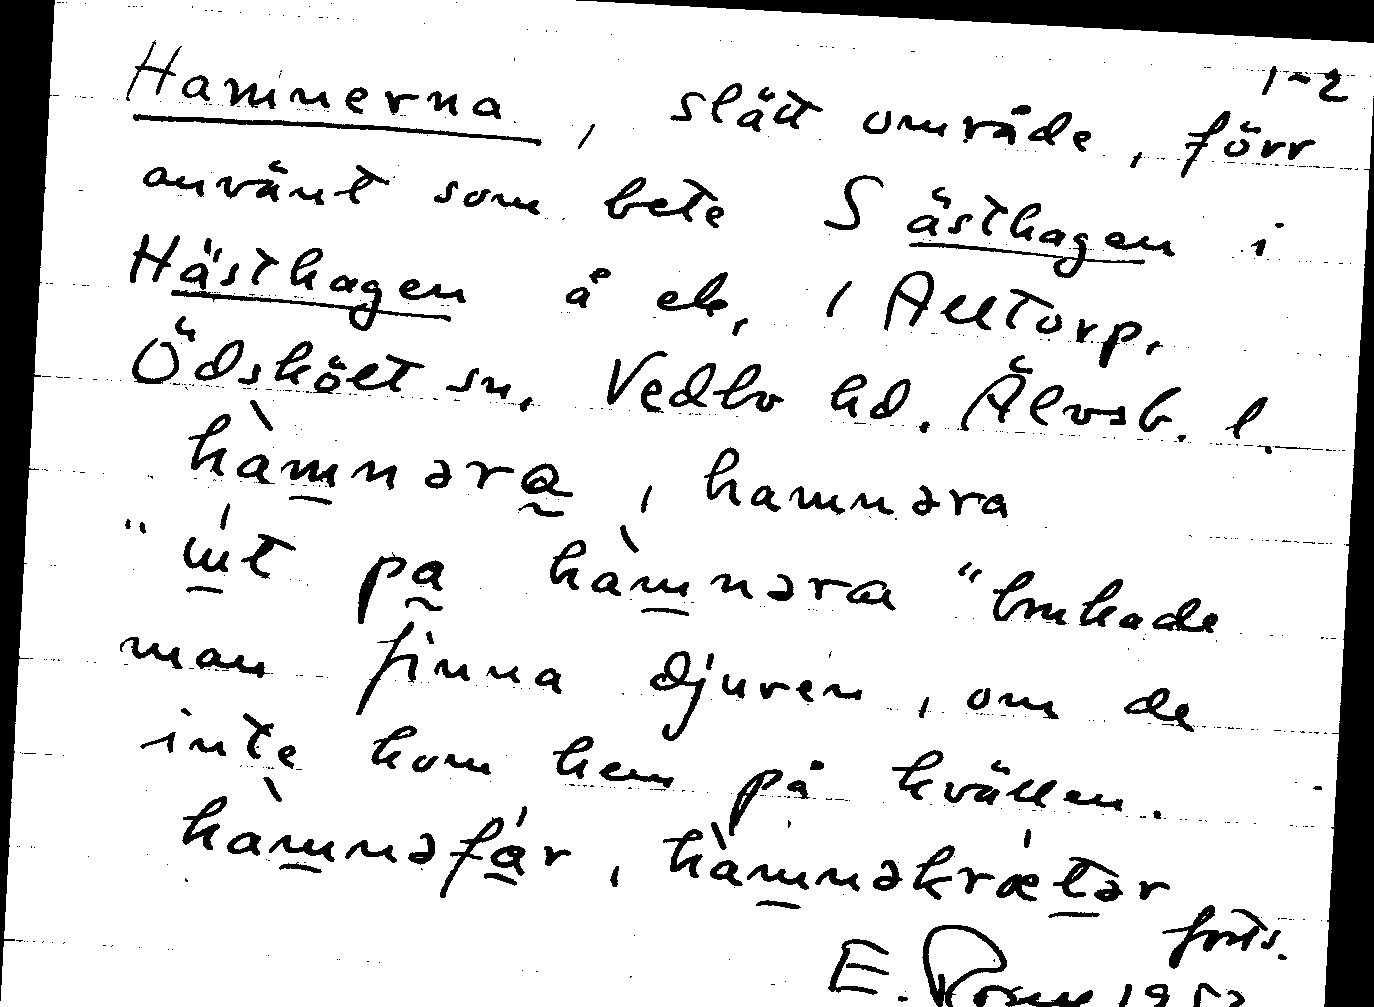 1-2
Hamnerna, slätt område, förr
använt som bete S ästhagen i
Hästhagen å ek, 1 Alltorp,
Ödskölt sn, Vedbo hd. Älvsb. l.
hàmnəra, hamnəra
"út pa hàmnəra" brukade
man finna djuren, om de
inte kom hem på kvällen.
hàmnəfár, hàmnəkrǽtər
forts.
E. 195